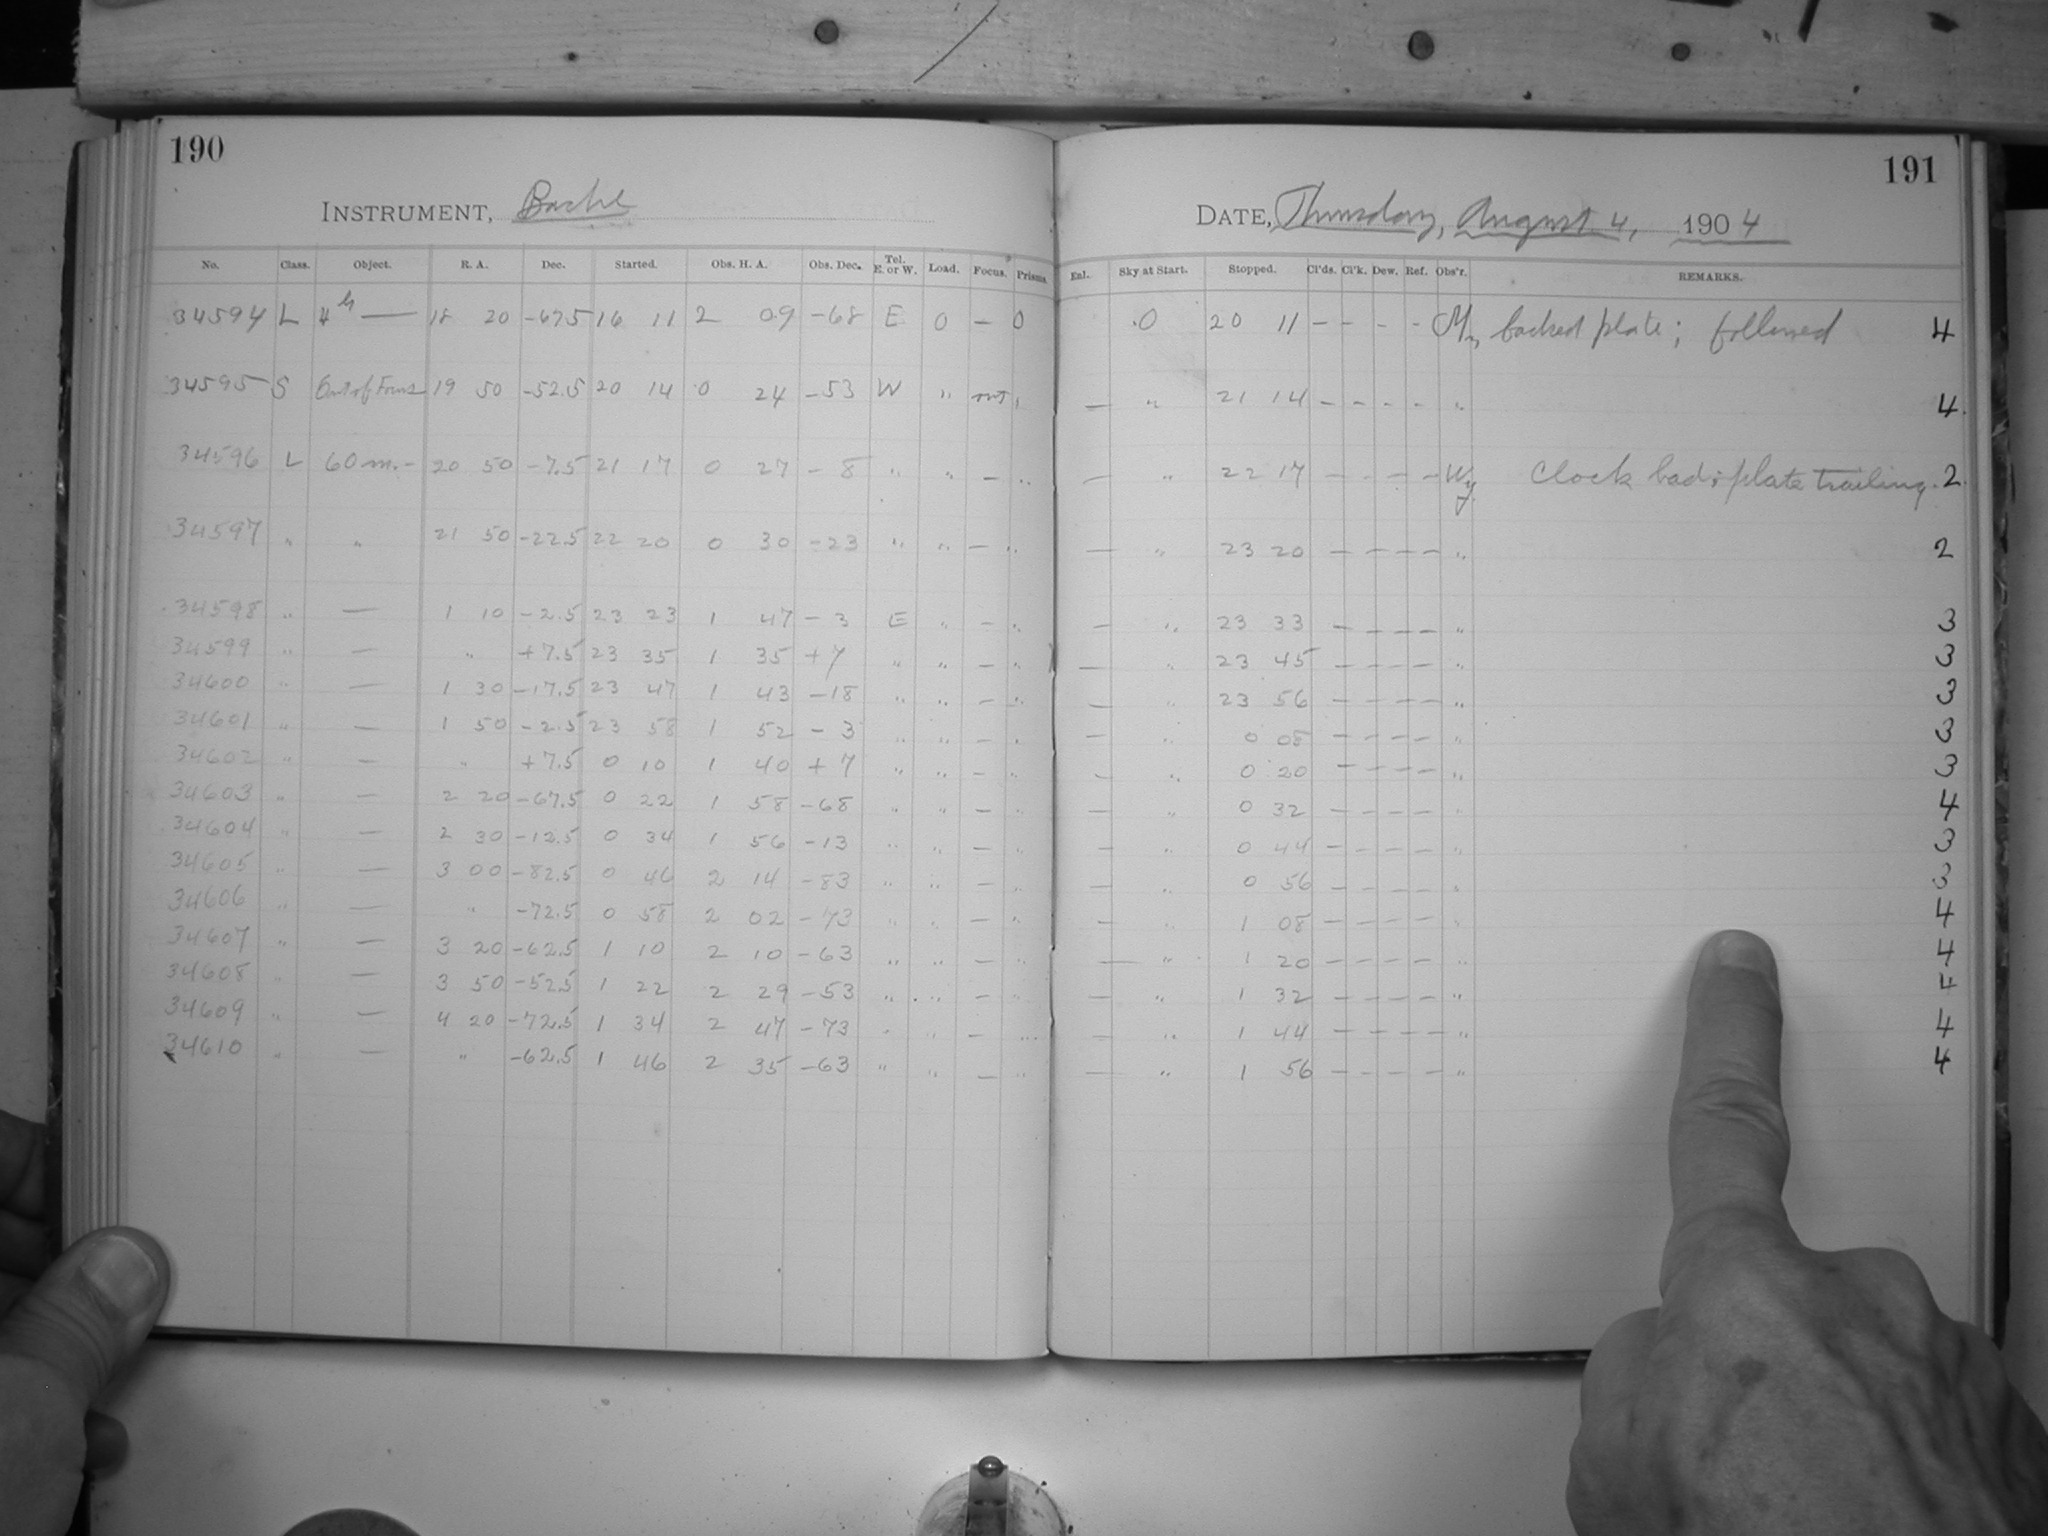 190
191
INSTRUMENT, Bache
DATE, Thursday, August 4, 1904
No. Class. Object. R. A. Dec. Started. Obs. H. A. Obs. Dec. Tel. E. or W. Load. Focus. Prisms. Enl. Sky at Start. Stopped. Cl'ds. Cl'k. Dew. Ref. Obs'r. REMARKS.
34594 L 4h — 18 20 -67.5 16 11 2 09 -68 E 0 — 0 .0 20 11 - - - - backed plate; followed 4
34595 S Out of Focus 19 50 -52.5 20 14 0 24 -53 W " out " — " 21 14 - - - - " 4.
34596 L 60 m. - 20 50 -7.5 21 17 0 27 - 8 " " — " — " 22 17 - - - - Wy. Clock bad; plate trailing. 2.
34597 " " 21 50 -22.5 22 20 0 30 -23 " " — " — " 23 20 - - - - " 2
34598 " — 1 10 -2.5 23 23 1 47 - 3 E " — " — " 23 33 - - - - " 3
34599 " — " +7.5 23 35 1 35 +7 " " — " — " 23 45 - - - - " 3
34600 " — 1 30 -17.5 23 47 1 43 -18 " " — " — " 23 56 - - - - " 3
34601 " — 1 50 -2.5 23 58 1 52 - 3 " " — " — " 0 08 - - - - " 3
34602 " — " +7.5 0 10 1 40 + 7 " " — " — " 0 20 - - - - " 3
34603 " — 2 20 -67.5 0 22 1 58 -68 " " — " — " 0 32 - - - - " 4
34604 " — 2 30 -12.5 0 34 1 56 -13 " " — " — " 0 44 - - - - " 3
34605 " — 3 00 -82.5 0 46 2 14 -83 " " — " — " 0 56 - - - - " 3
34606 " — " -72.5 0 58 2 02 -73 " " — " — " 1 08 - - - - " 4
34607 " — 3 20 -62.5 1 10 2 10 -63 " " — " — " 1 20 - - - - " 4
34608 " — 3 50 -52.5 1 22 2 29 -53 " " — " — " 1 32 - - - - " 4
34609 " — 4 20 -72.5 1 34 2 47 -73 " " — " — " 1 44 - - - - " 4
34610 " — " -62.5 1 46 2 35 -63 " " — " — " 1 56 - - - - " 4